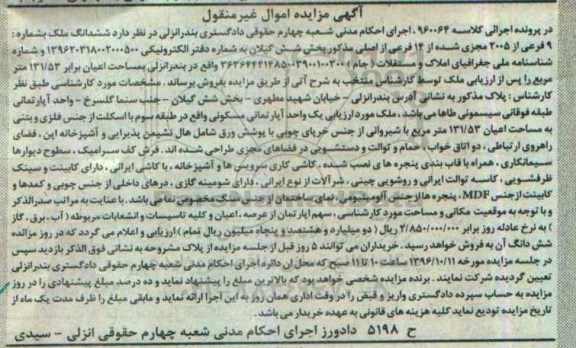 آگهی مزایده اموال غیرمنقول
در پرونده اجرائی کلاسه ۹۶۰۰۶۴ ، اجرای احکام مدنی شعبه چهارم حقوقی دادگستری بندرانزلی در نظر دارد ششدانگ ملک بشماره :
۹ فرعی از ۲۰۰۵ مجزی شده از ۱۴ فرعی از اصلی مذکور بخش شش گیلان به شماره دفتر الکترونیکی ۱۳۹۶۲۰۳۱۸۰۰۲۰۰۰۵۰۰ و شماره
شناسنامه ملی جغرافیای املاک و مستغلات (جام) واقع در بندرانزلی بمساحت اعیان برابر ۱۳۱/۵۳ متر
مربع را پس از ارزیابی ملک توسط کارشناس منتخب به شرح آتی از طریق مزایده بفروش برساند . مشخصات مورد کارشناسی طبق نظر
کارشناس : پلاک مذکور به نشانی آدرس بندرانزلی - خیابان شهید مطهری - بخش شش گیلان - جنب سنما گلسرخ - واحد آپارتمانی
طبقه فوقانی سیسمونی طاها می باشد ، ملک مورد ارزیابی یک واحد آپارتمانی مسکونی واقع در طبقه سوم با اسکلت از جنس فلزی و بتنی
به مساحت اعیان ۱۳۱/۵۳ متر مربع با شیروانی از جنس خرپای چوبی با پوشش ورق شامل هال نشیمن پذیرایی و آشپزخانه اپن ، فضای
راهروی ارتباطی ، دو اتاق خواب ، حمام و توالت و دستشویی در فضاهای مجزی طراحی شده اند. فرش کف سرامیک ، سطوح دیوارها
سیمانکاری ، همراه با قاب بندی پنجره ها ی نصب شیده ، کاشی کاری سرویس ها و آشپزخانه ، با کاشی ایرانی ، دارای کابینت و سینک
ظرفشویی ، کاسه توالت ایرانی و روشویی چینی ، شرآلات از نوع ایرانی ، دارای شومینه گازی ، درهای داخلی از جنس چوبی و کمدها و
کابینت ازجنس MDF ، پنجره ها از جنس آلومینیومی ، نمای ساختمان از جنس سنگ مخصوص نمامی باشد. با عنایت به مراتب صدرالذکر
و با توجه به موقعیت مکانی و مساحت مورد کارشناسی ، سهم اپارتمان از عرصه ، اعیان و کلیه تاسیسات و انشعابات مربوطه ( آب ، برق ، گاز
) به نرخ عادله روز برابر ۲/۸۵۰/۰۰۰/۰۰۰ ریال ( دو میلیارد و هشتصد و پنجاه میلیون ریال تمام ) ارزیابی و اعلام می گردد که در روز مزائده
شش دانگ آن به فروش خواهد رسید . خریداران می توانند ۵ روز قبل از جلسه مزایده از پلاک مشروحه به نشانی فوق الذکر بازدید سپس
در جلسه مزایده مورخه ۱۳۹۶/۱۰/۱۱ ساعت ۱۰ تا ۱۱ صبح که محل ان دائره اجرای احکام مدنی شعبه چهارم حقوقی دادگستری بندرانزلی
تعیین گردیده شرکت نمایند . برنده مزایده شخصی خواهد بود که بالاترین مبلغ را پیشنهاد نماید و ده درصد مبلغ پیشنهادی را در روز
مزایده به حساب سپرده دادگستری واریز و قبض را در وقت اداری همان روز به این اجرا ارائه نماید و مابقی مبلغ را ظرف مدت یک ماه از
تاریخ مزایده تودیع نماید کلیه هزینه های قانونی به عهده خریدار می باشد .
ح ۵۱۹۸ دادورز اجرای احکام مدنی شعبه چهارم حقوقی انزلی - سیدی